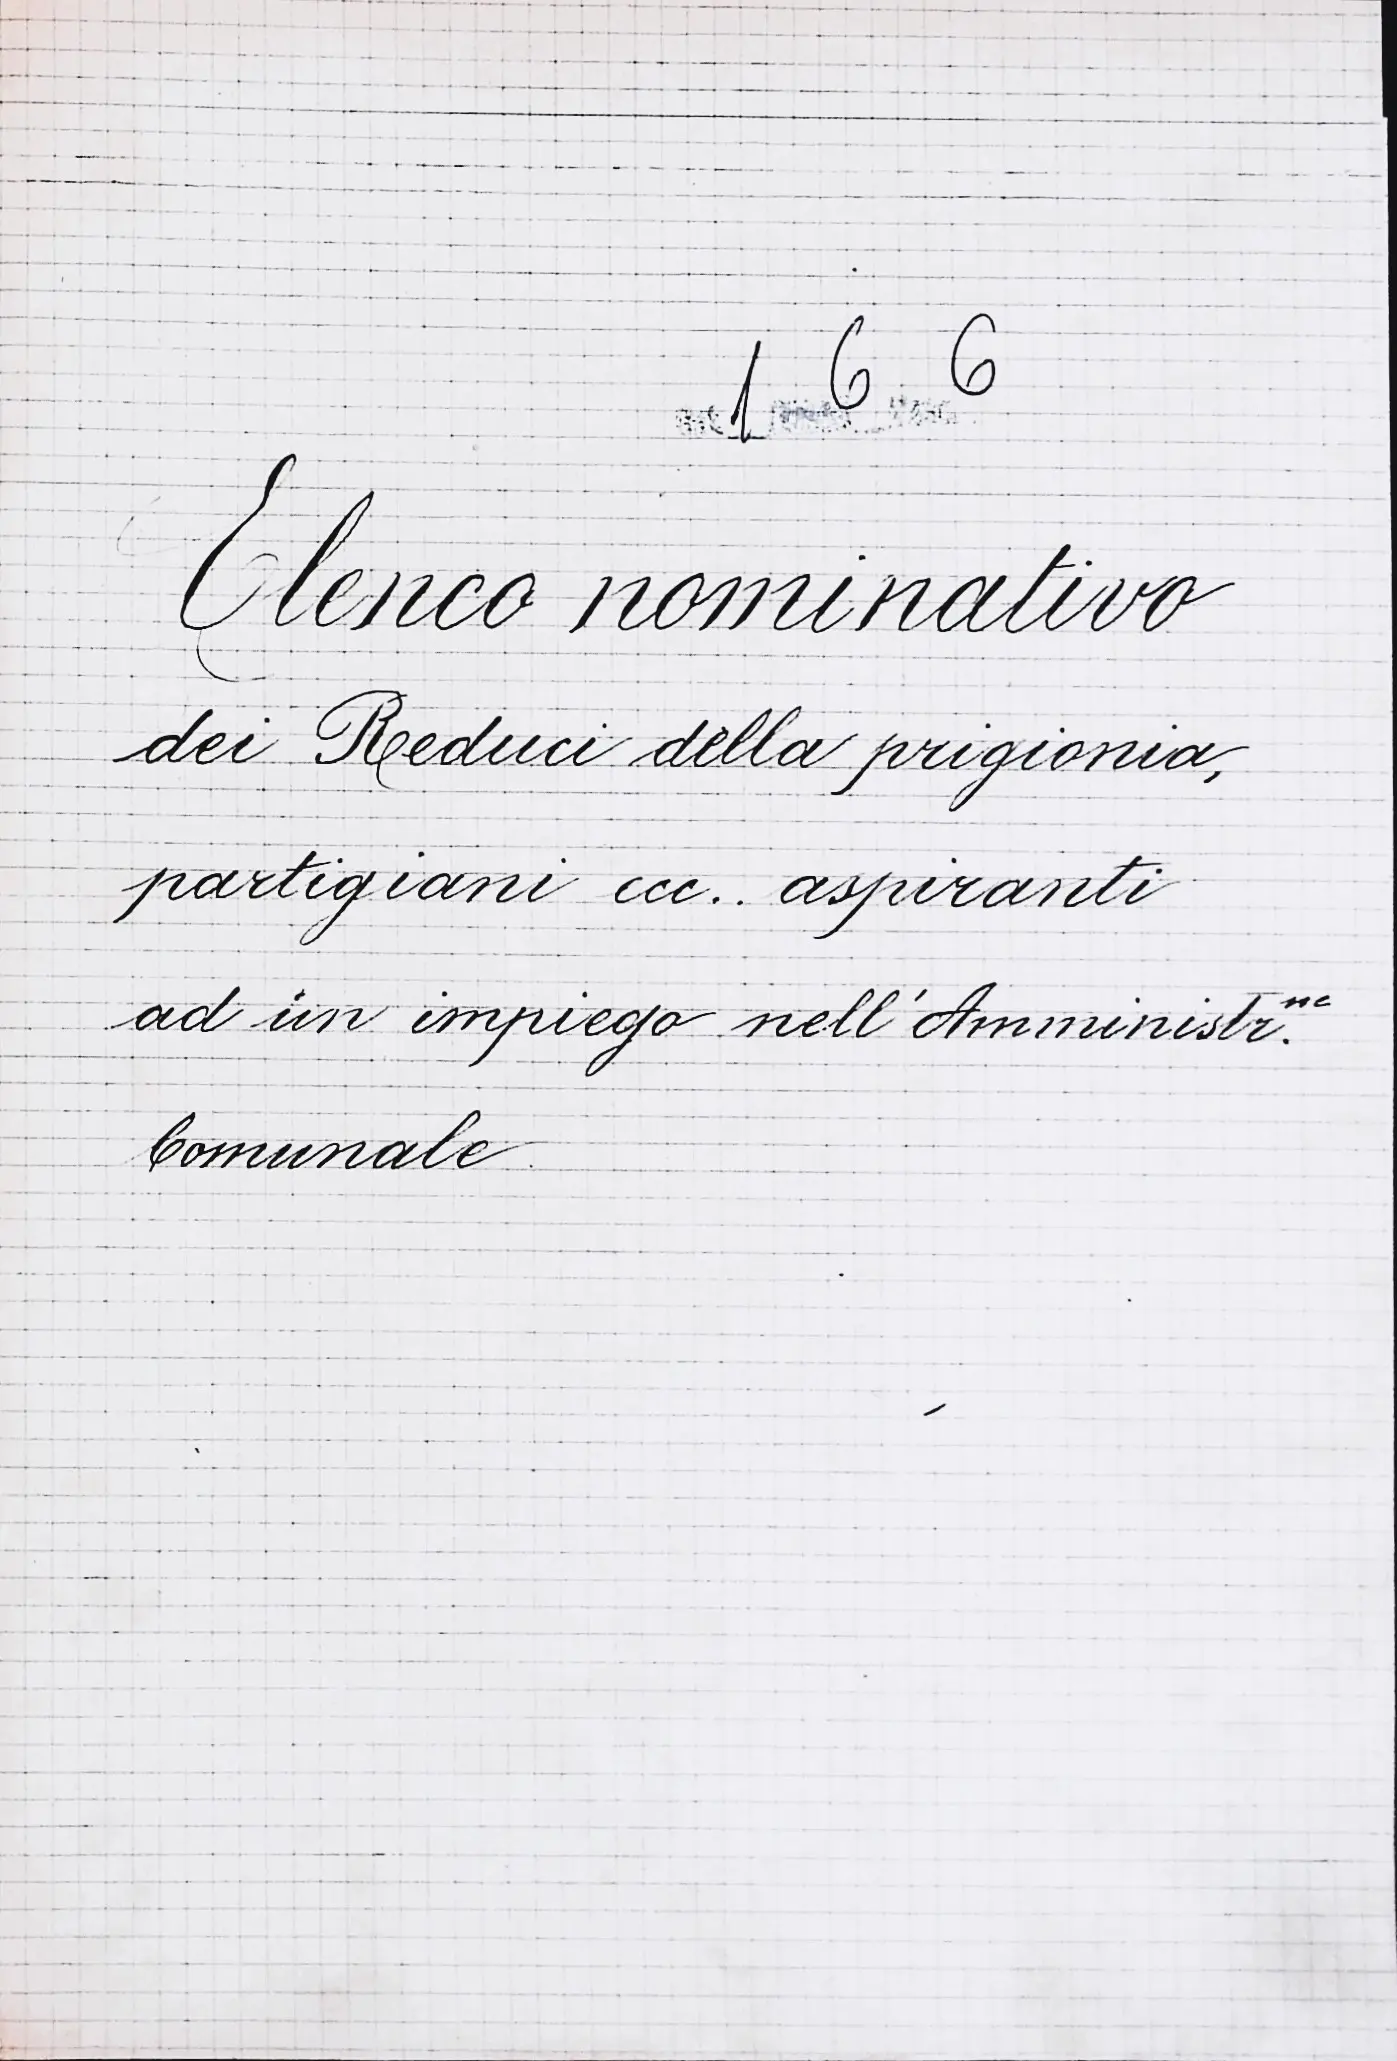 1 6 6
Elenco nominativo
dei Reduci della prigionia,
partigiani ecc.. aspiranti
ad un impiego nell'Amministr.ne
Comunale